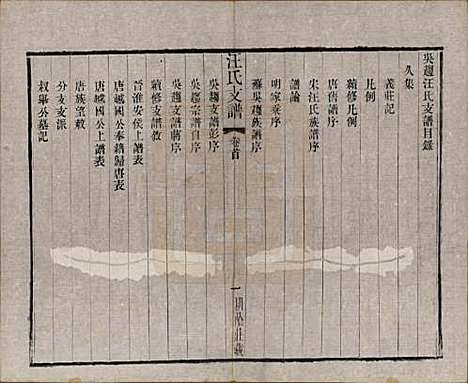 吳趨汪氏支譜目錄
久集
義莊記
凡例
續修凡例
唐舊譜序
宋汪氏族譜序
譜論
明家乘序
蘇吳趨族譜序
吳趨支譜彭序
吳趨宗譜自序
汪氏支譜
卷首
一
吳趨支譜蔣序
續修支譜敘
晉淮安侯上譜表
唐越國公奉籍歸唐表
唐越國公上譜表
唐族望敕
分支支派
叔舉公墓記